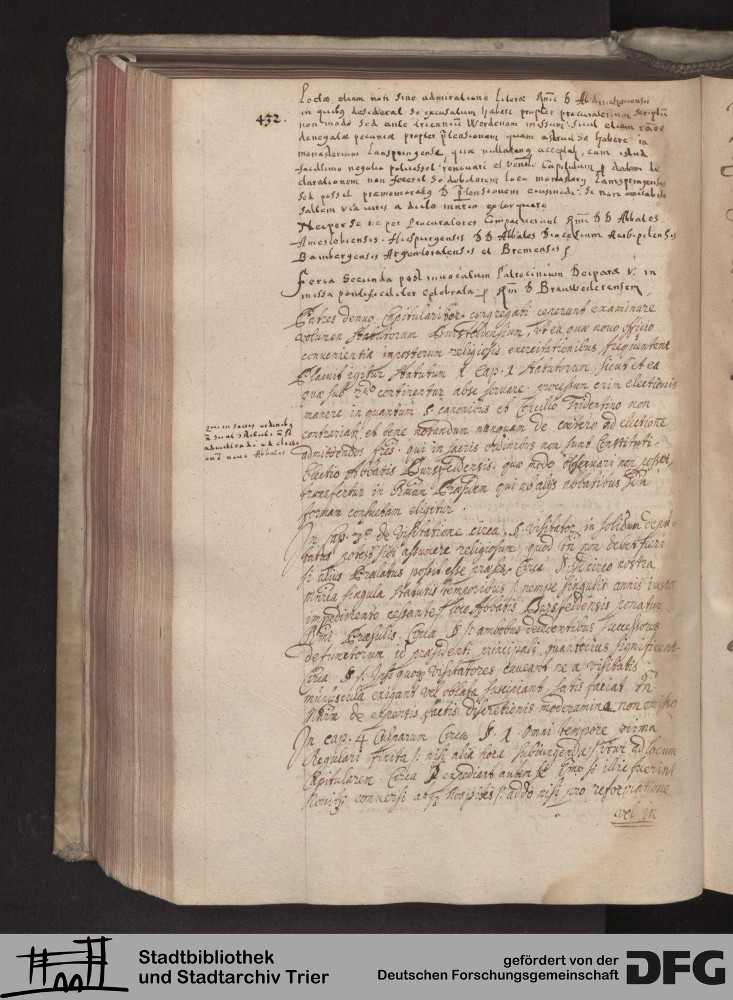 432.
Lectae etiam non sine admiratione literae Rmi D Abdinchouensis
in quibus desiderat se excusatum habere propter procuratorium scriptu
non modo sed ante triennium Werdenam missum: sicut etiam
denegatae pecuniae propter praetensionem quam astruit se habere in
monasterium Lamspringense, quae nullatenus acceptat, cum istud
facillimo negotio potuisset renovari et Venle Capitulum
clarationem non fecerit se debitorem loco monastery Lamspringensis
sed posset praememoratus D praetensionem
saltem a dicto
Nec per se nec per Procuratores Comparuerunt Rmi D D Abbates
Huespurgensis D D Abbates Dioecesium Herbipolensis
Bambergensis Argentoratensis et Bremensis
Feria Secunda post invocatum Patrocinium Deiparae V. in
missa pontificaliter Celebrata p Rm D Brauwilerensem
Patres denuo Capitulariter congregati ceperunt examinare
volumen Statutorum Bursfeldensium, ut ea quae nouo officio
convenientia imposterum religiosis exercitationibus frequentent
Placuit igitur Statutum 1 Cap. 1 Statutorum, sicut et ea
quae sub 2do continentur abse seruare. processum enim electionis
manere in quantum S. canonibus et Concilio Tridentino non
contrariatur, et bene notandum nunquam de caetero ad electione
admittendos fres. qui in sacris ordinibus non sunt Constituti.
Electio Abbatis Bursfeldensis, quo modo observari non posset,
transfertur in Rmum Praesidem qui ab alijs abbatibus
formam consuetam eligitur.
Qui in sacris ordinibus
non sunt Constituti non sunt
admittendi ad electionem
noui Abbatis
In Cap. 3o de Visitatione circa, S. Visitator in solidum
potest sibi assumere religiosum, quod tn non debet fieri
si alius Praelatus possit esse praesens. Circa S. Idcirco nostra
Mria singula statutis temporibus /: nempe singulis annis iusto
impedimento cessante:/ loco Abbatis Bursfeldensis ponatur
Rmi Praesulis. Circa S si ambobus decedentibus successores
defunctorum id praesidenti principali quantocius significent.
Circa S. Ipsi quoque Visitatores caueant ne a visitatis
munuscula exigant vel oblata suscipiant, satis faciat tn
Mrium de expensis factis discretionis moderamina non omisso
In cap. 4 Culparum Circa S. 1. Omni tempore prima
Regulari finita /: nisi alia hora subiungenda:/ itur ad locum
Capitularem. Circa S expediant autem se Imo si illic fuerint
Nouitij conuersi atque hospites /: addo nisi pro reformatione
vel in
Stadtbibliothek
und Stadtarchiv Trier
gefördert von der
Deutschen Forschungsgemeinschaft
DFG